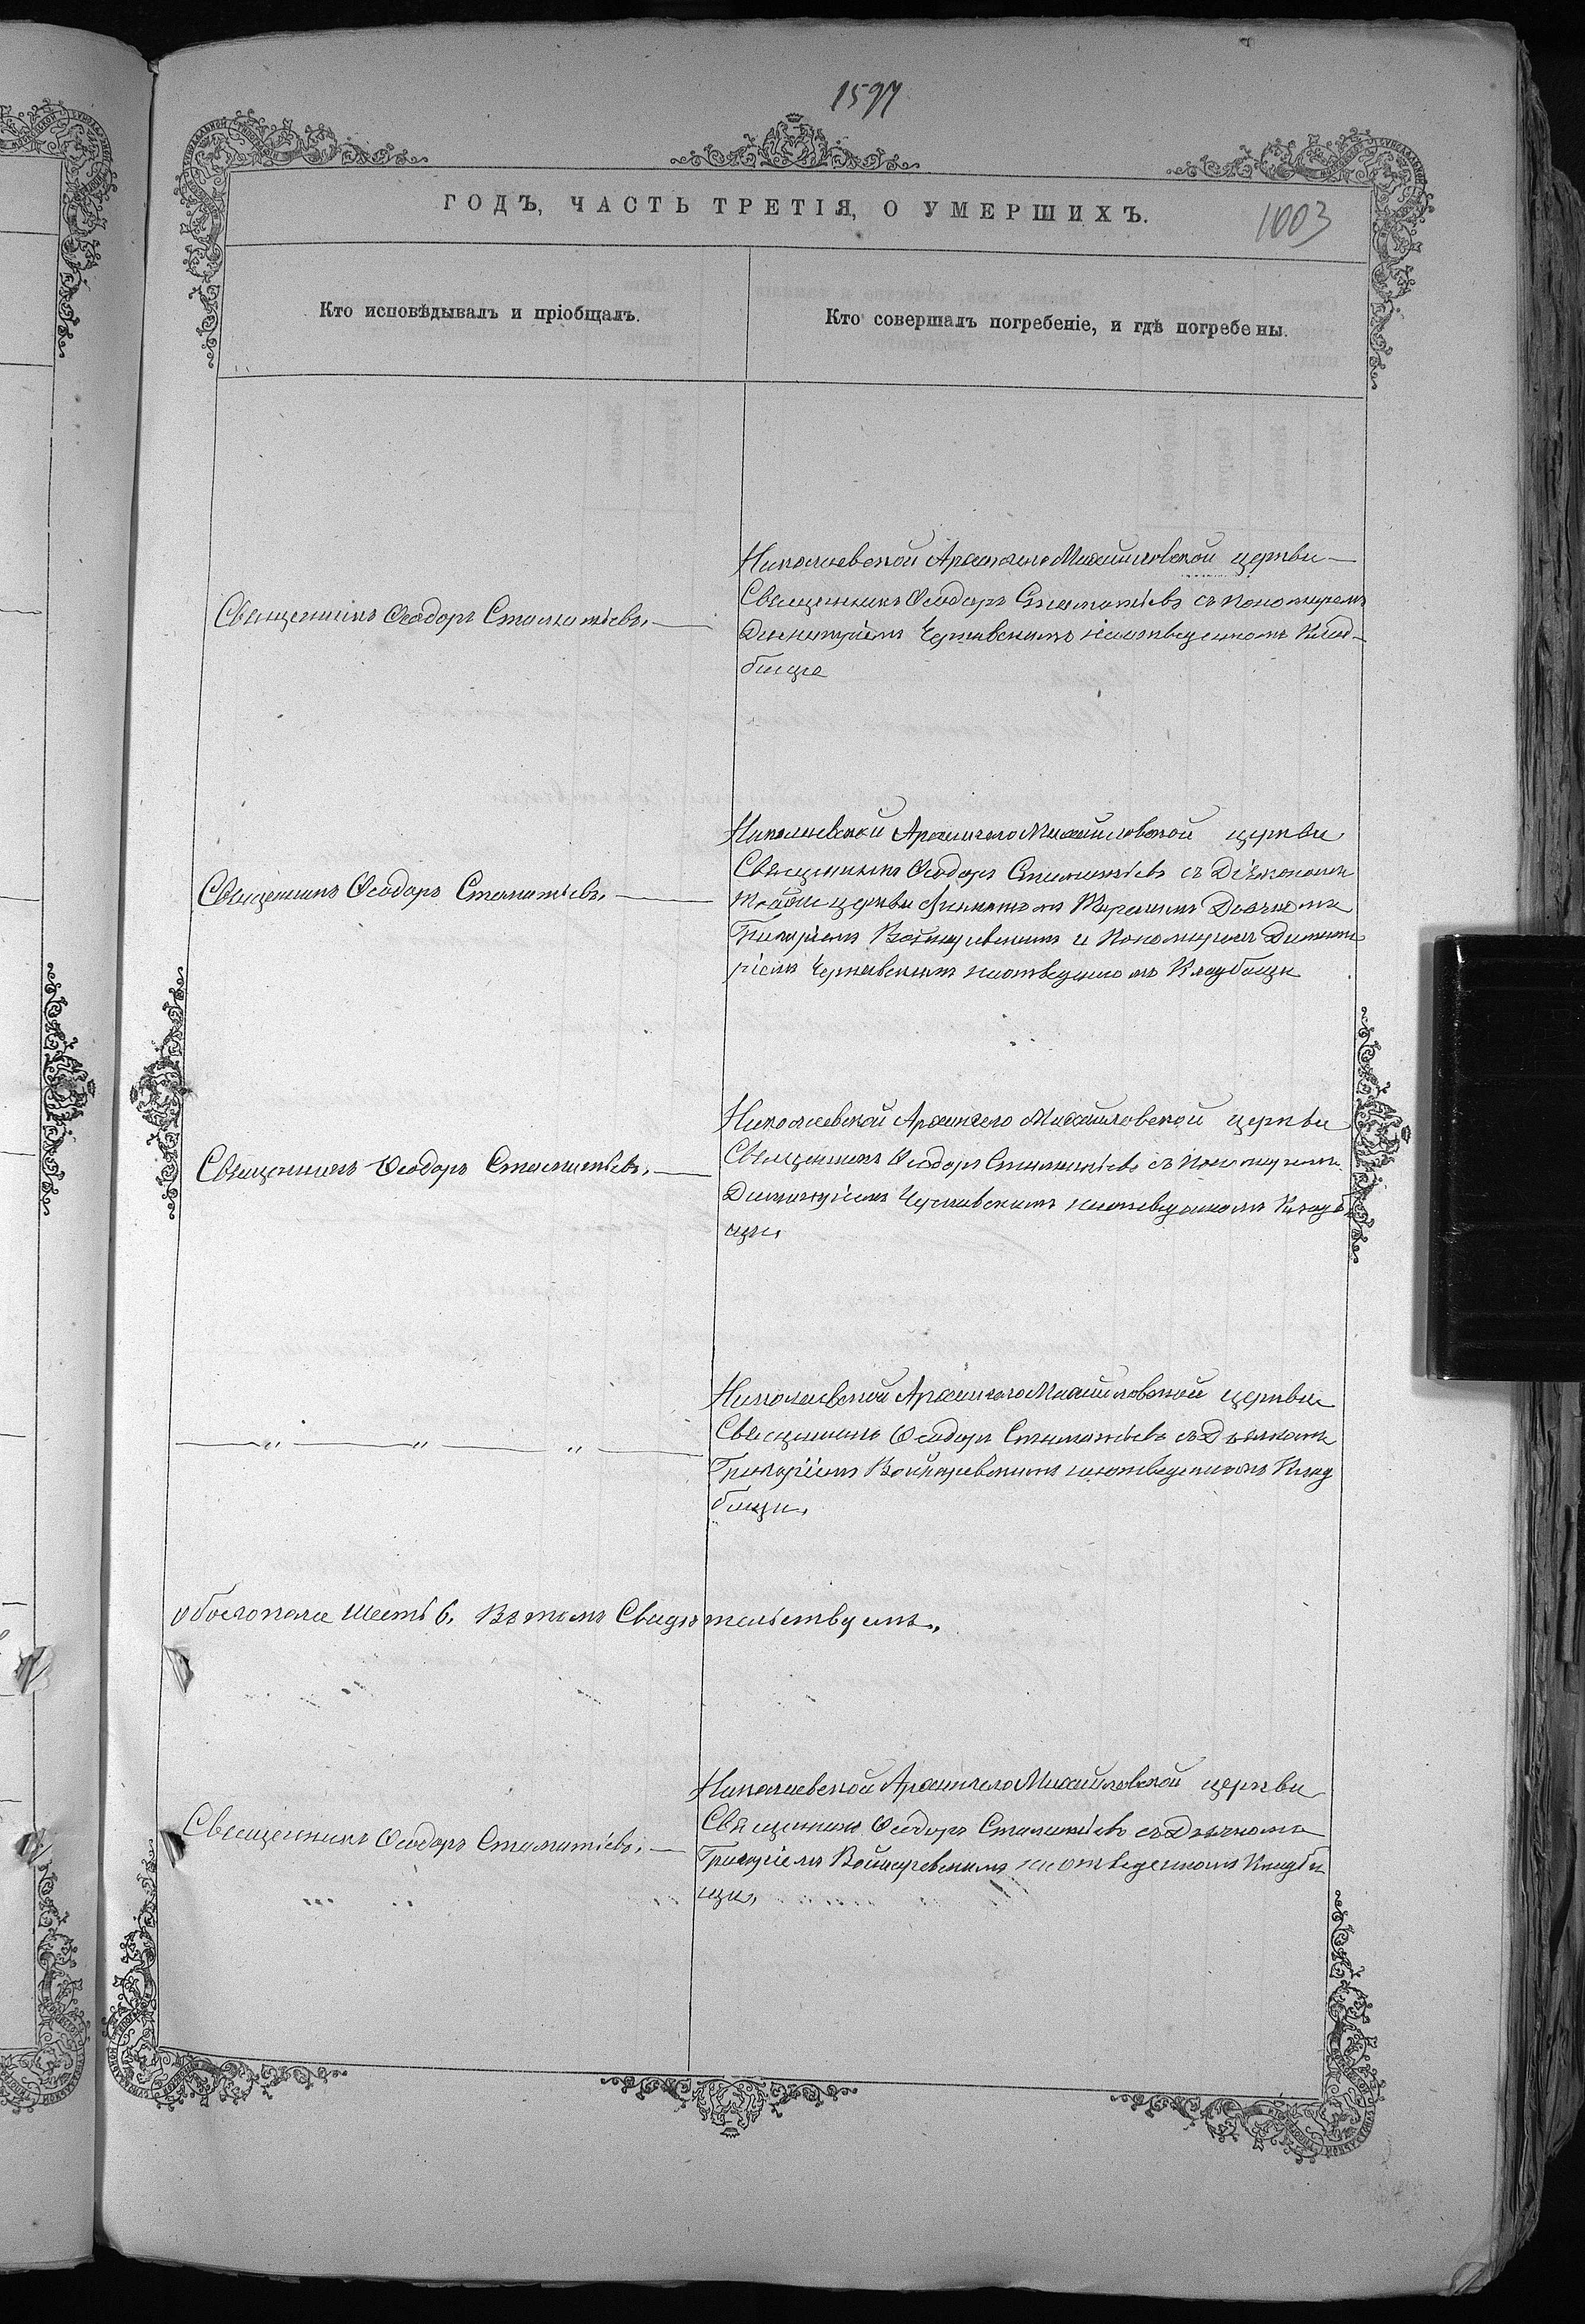 1597
ГОДЪ, ЧАСТЬ ТРЕТІЯ, О УМЕРШИХЪ.
1003
Кто исповѣдывалъ и пріобщалъ.
Кто совершалъ погребеніе, и гдѣ погребены.
Священникъ Ѳеодоръ Стаматьевъ,
Николаевской Архангело Михайловской церкви
Священникъ Ѳеодоръ Стаматьевъ съ пономаремъ
Димитріемъ Чернявскимъ наотведеномъ Клад-
бище
Священникъ Ѳеодоръ Стаматьевъ,
Николаевской Архангело Михайловской церкви
Священникъ Ѳеодоръ Стаматьевъ съ Діякономъ
церкви Дьячкомъ
Григоріемъ и Пономаремъ Димит
ріемъ Чернявскимъ наотведеномъ Кладбищи
Священникъ Ѳеодоръ Стаматьевъ,
Николаевской Архангело Михайловской церкви
Священникъ Ѳеодоръ Стаматьевъ съ Пономаремъ
Димитріемъ Чернявскимъ наотведеномъ Кладб
ищи,
Николаевской Архангело Михайловской церкви
Священникъ Ѳеодоръ Стаматьевъ съ Дьячкомъ
Григоріемъ Войнаревскимъ наотведеномъ Клад
бищи,
обоегопола шесть 6, Въ томъ Свидѣтельствуемъ,,
Священникъ Ѳеодоръ Стаматьевъ,
Николаевской Архангело Михайловской церкви
Священникъ Ѳеодоръ Стаматьевъ съ Дьячкомъ
Григоріемъ Войнаревскимъ наотведеномъ Кладби
щи,